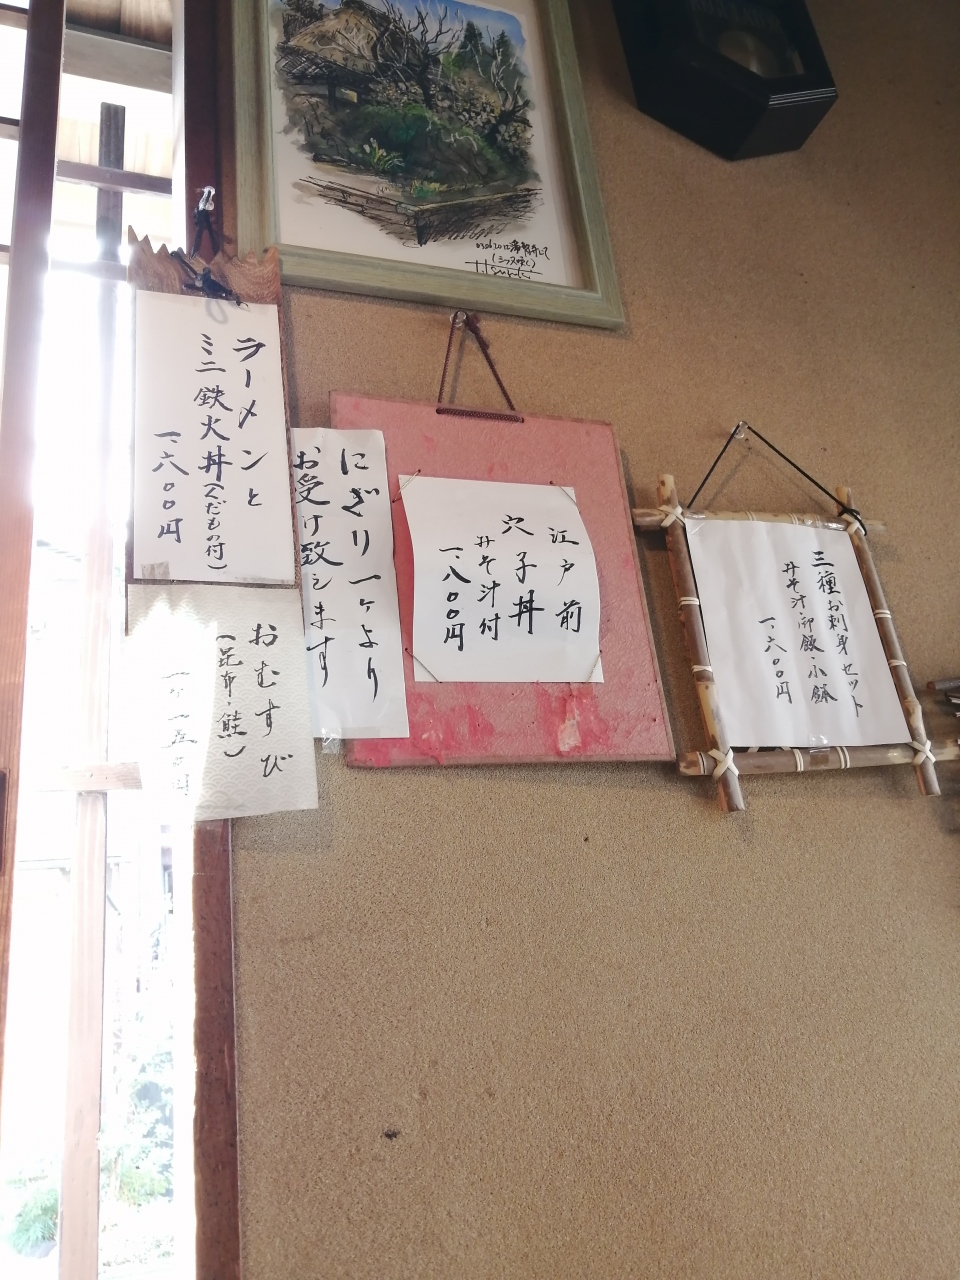 三種お刺身セット
みそ汁・御飯・小鉢
一、六〇〇円
江戸前
穴子丼
みそ汁付
一、八〇〇円
にぎり一ヶより
お受け致します
ラーメンと
ミニ鉄火丼(くだもの付)
一、六〇〇円
おむすび
(昆布・鮭)